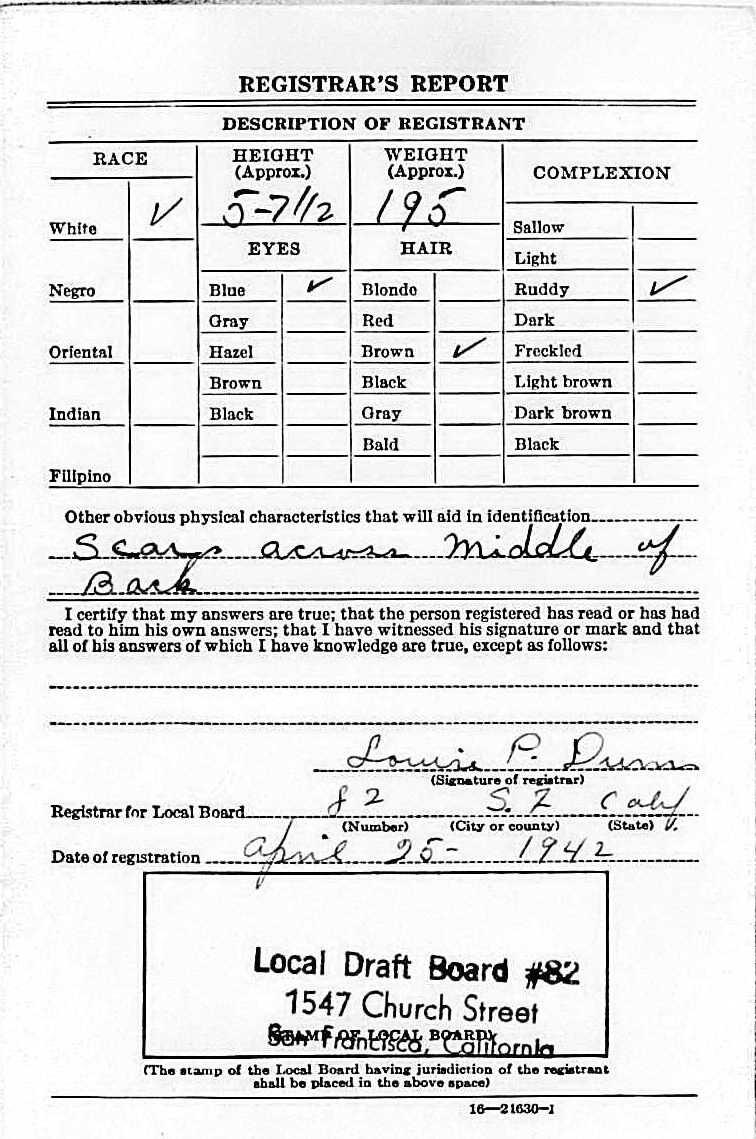 REGISTRAR'S REPORT
DESCRIPTION OF REGISTRANT
RACE
HEIGHT
(Approx.)
WEIGHT
(Approx.)
COMPLEXION
5-7 1/2
195
White ✓
Sallow
EYES
HAIR
Light
Negro
Blue ✓
Blonde
Ruddy ✓
Gray
Red
Dark
Oriental
Hazel
Brown ✓
Freckled
Brown
Black
Light brown
Indian
Black
Gray
Dark brown
Bald
Black
Filipino
Other obvious physical characteristics that will aid in identification
Scars across Middle of
Back
I certify that my answers are true; that the person registered has read or has had
read to him his own answers; that I have witnessed his signature or mark and that
all of his answers of which I have knowledge are true, except as follows:
Louise P. Dunn
(Signature of registrar)
Registrar for Local Board 82 S. F. Calif
(Number) (City or county) (State)
Date of registration April 25- 1942
Local Draft Board #82
1547 Church Street
San Francisco, California
(STAMP OF LOCAL BOARD)
(The stamp of the Local Board having jurisdiction of the registrant
shall be placed in the above space)
16—21630-1